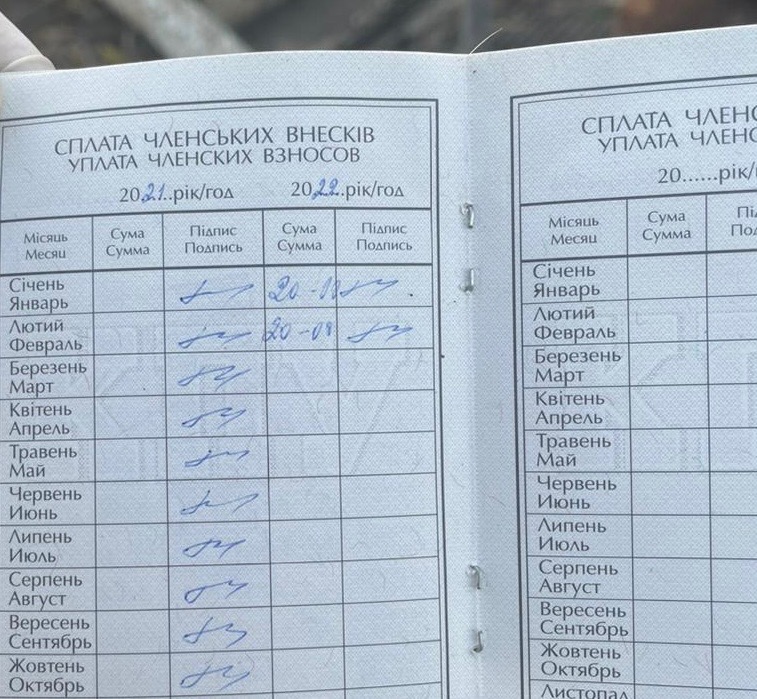 СПЛАТА ЧЛЕНСЬКИХ ВНЕСКІВ
УПЛАТА ЧЛЕНСКИХ ВЗНОСОВ
2021..рік/год 2022.рік/год
Місяць Сума Підпис Сума Підпис
Месяц Сумма Подпись Сумма Подпись
Січень
Январь 20
Лютий
Февраль 20
Березень
Март
Квітень
Апрель
Травень
Май
Червень
Июнь
Липень
Июль
Серпень
Август
Вересень
Сентябрь
Жовтень
Октябрь
СПЛАТА ЧЛЕНС
УПЛАТА ЧЛЕНС
20......рік/
Місяць Сума Пі
Месяц Сумма По
Січень
Январь
Лютий
Февраль
Березень
Март
Квітень
Апрель
Травень
Май
Червень
Июнь
Липень
Июль
Серпень
Август
Вересень
Сентябрь
Жовтень
Октябрь
Листопад